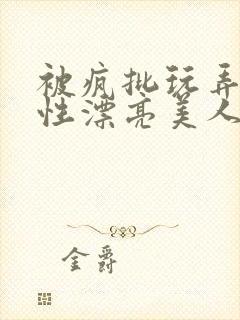 被疯批玩弄
性漂亮美人
金爵